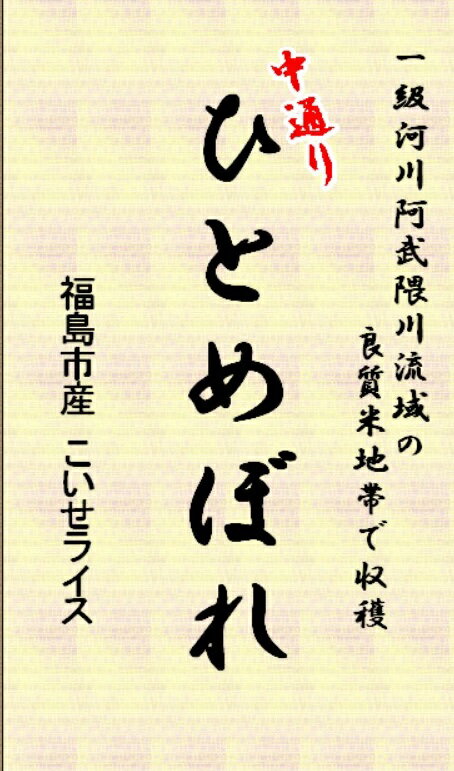 一級河川阿武隈川流域の
良質米地帯で収穫
中通り
ひとめぼれ
福島市産 こいせライス